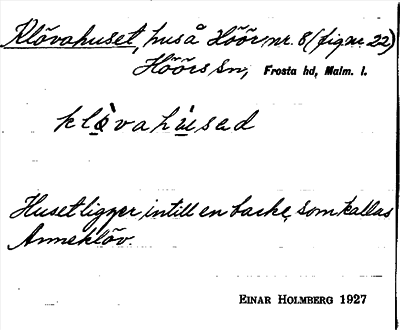 Klövahuset, hus å Höör nr. 8 (fig nr. 22)
Höörs sn, Frosta hd, Malm. l.
klò̤vahṳ̀sad
Huset ligger intill en backe, som kallas
Anneklöv.
EINAR HOLMBERG 1927